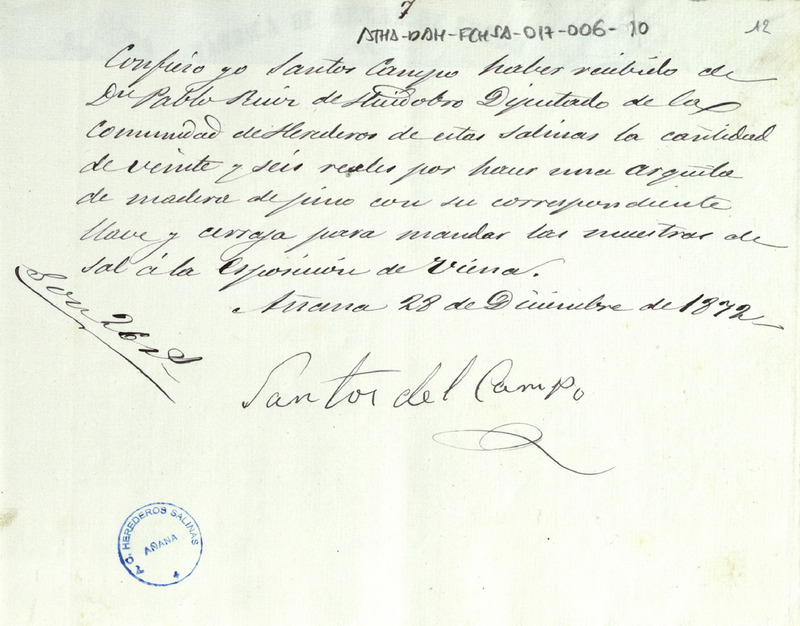 7
ATHA-DAH-FCHSA-017-006-10
12
Confieso yo Santos Campo haber recibido de
Dn Pablo Ruiz de Huidobro Diputado de la
Comunidad de Herederos de estas Salinas la cantidad
de veinte y seis reales por hacer una arquita
de madera de pino con su correspondiente
llave y cerraja para mandar las muestras de
sal á la Esposición de Viena.
Añana 28 de Diciembre de 1872
Son 26 rs
Santos del Campo
A. C. HEREDEROS SALINAS
AÑANA